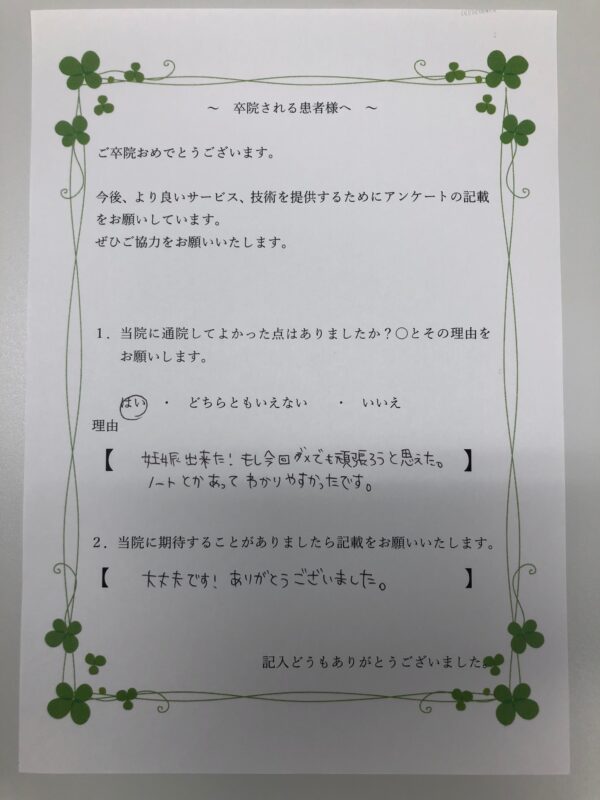 ～ 卒院される患者様へ ～
ご卒院おめでとうございます。
今後、より良いサービス、技術を提供するためにアンケートの記載
をお願いしています。
ぜひご協力をお願いいたします。
１．当院に通院してよかった点はありましたか？〇とその理由を
お願いします。
はい ・ どちらともいえない ・ いいえ
理由
【 妊娠出来た！もし今回ダメでも頑張ろうと思えた。 】
ノートとかあってわかりやすかったです。
２．当院に期待することがありましたら記載をお願いいたします。
【 大丈夫です！ありがとうございました。 】
記入どうもありがとうございました。